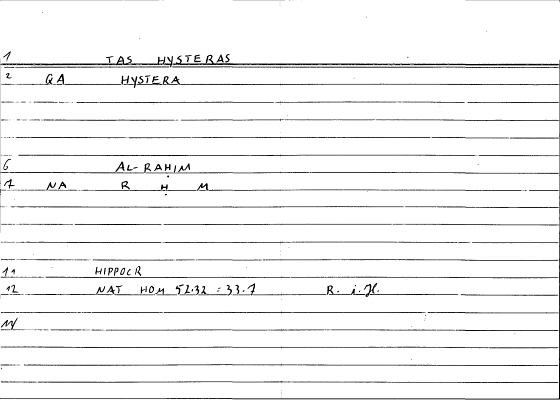 1 TAS HYSTERAS
2 GA HYSTERA
6 AL-RAḤIM
7 NA R Ḥ M
11 HIPPOCR
12 NAT HOM 52.32 : 33.7 R. i. H.
14